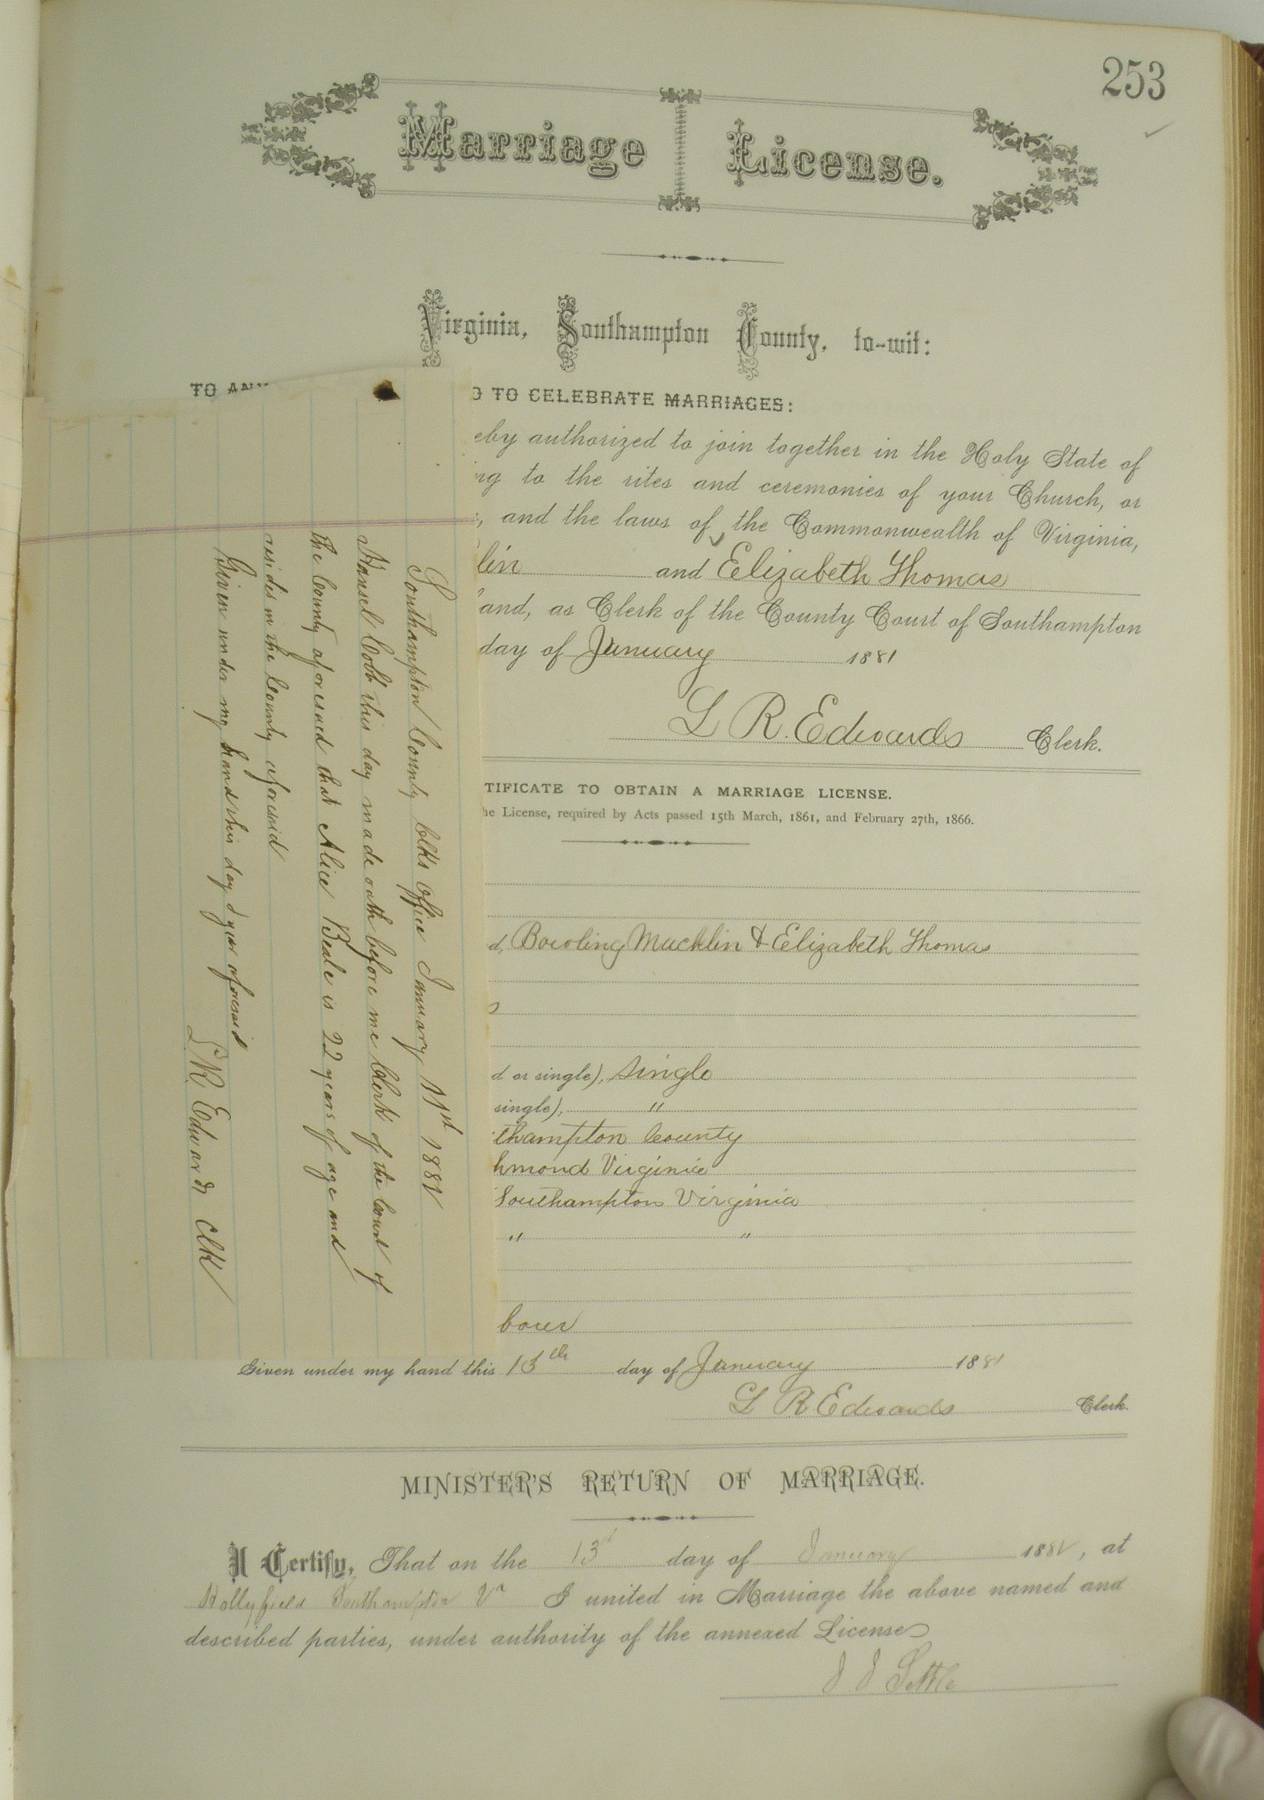 253
Marriage License.
Virginia, Southampton County, to-wit:
TO ANY
TO CELEBRATE MARRIAGES:
eby authorized to join together in the Holy State of
ng to the rites and ceremonies of your Church, or
, and the laws of the Commonwealth of Virginia,
lin and Elizabeth Thomas
and, as Clerk of the County Court of Southampton
day of January 1881
L R. Edwards Clerk.
TIFICATE TO OBTAIN A MARRIAGE LICENSE.
he License, required by Acts passed 15th March, 1861, and February 27th, 1866.
d, Bowling Macklin & Elizabeth Thomas
d or single), single
single), "
thampton County
hmond Virginia
Southampton Virginia
" "
borer
Given under my hand this 13th day of January 1881
L R Edwards Clerk.
MINISTER'S RETURN OF MARRIAGE.
I Certify, That on the 13 day of January 1881, at
Hollyfield Southampton Va I united in Marriage the above named and
described parties, under authority of the annexed License
J J Settle
Southampton County Clks Office January 11th 1881
Hansel Cobb this day made oath before me Clerk of the Court of
the County aforesaid that Alice Beale is 22 years of age and
resides in the County aforesaid
Given under my hand this day & year aforesaid
L R. Edwards Clk